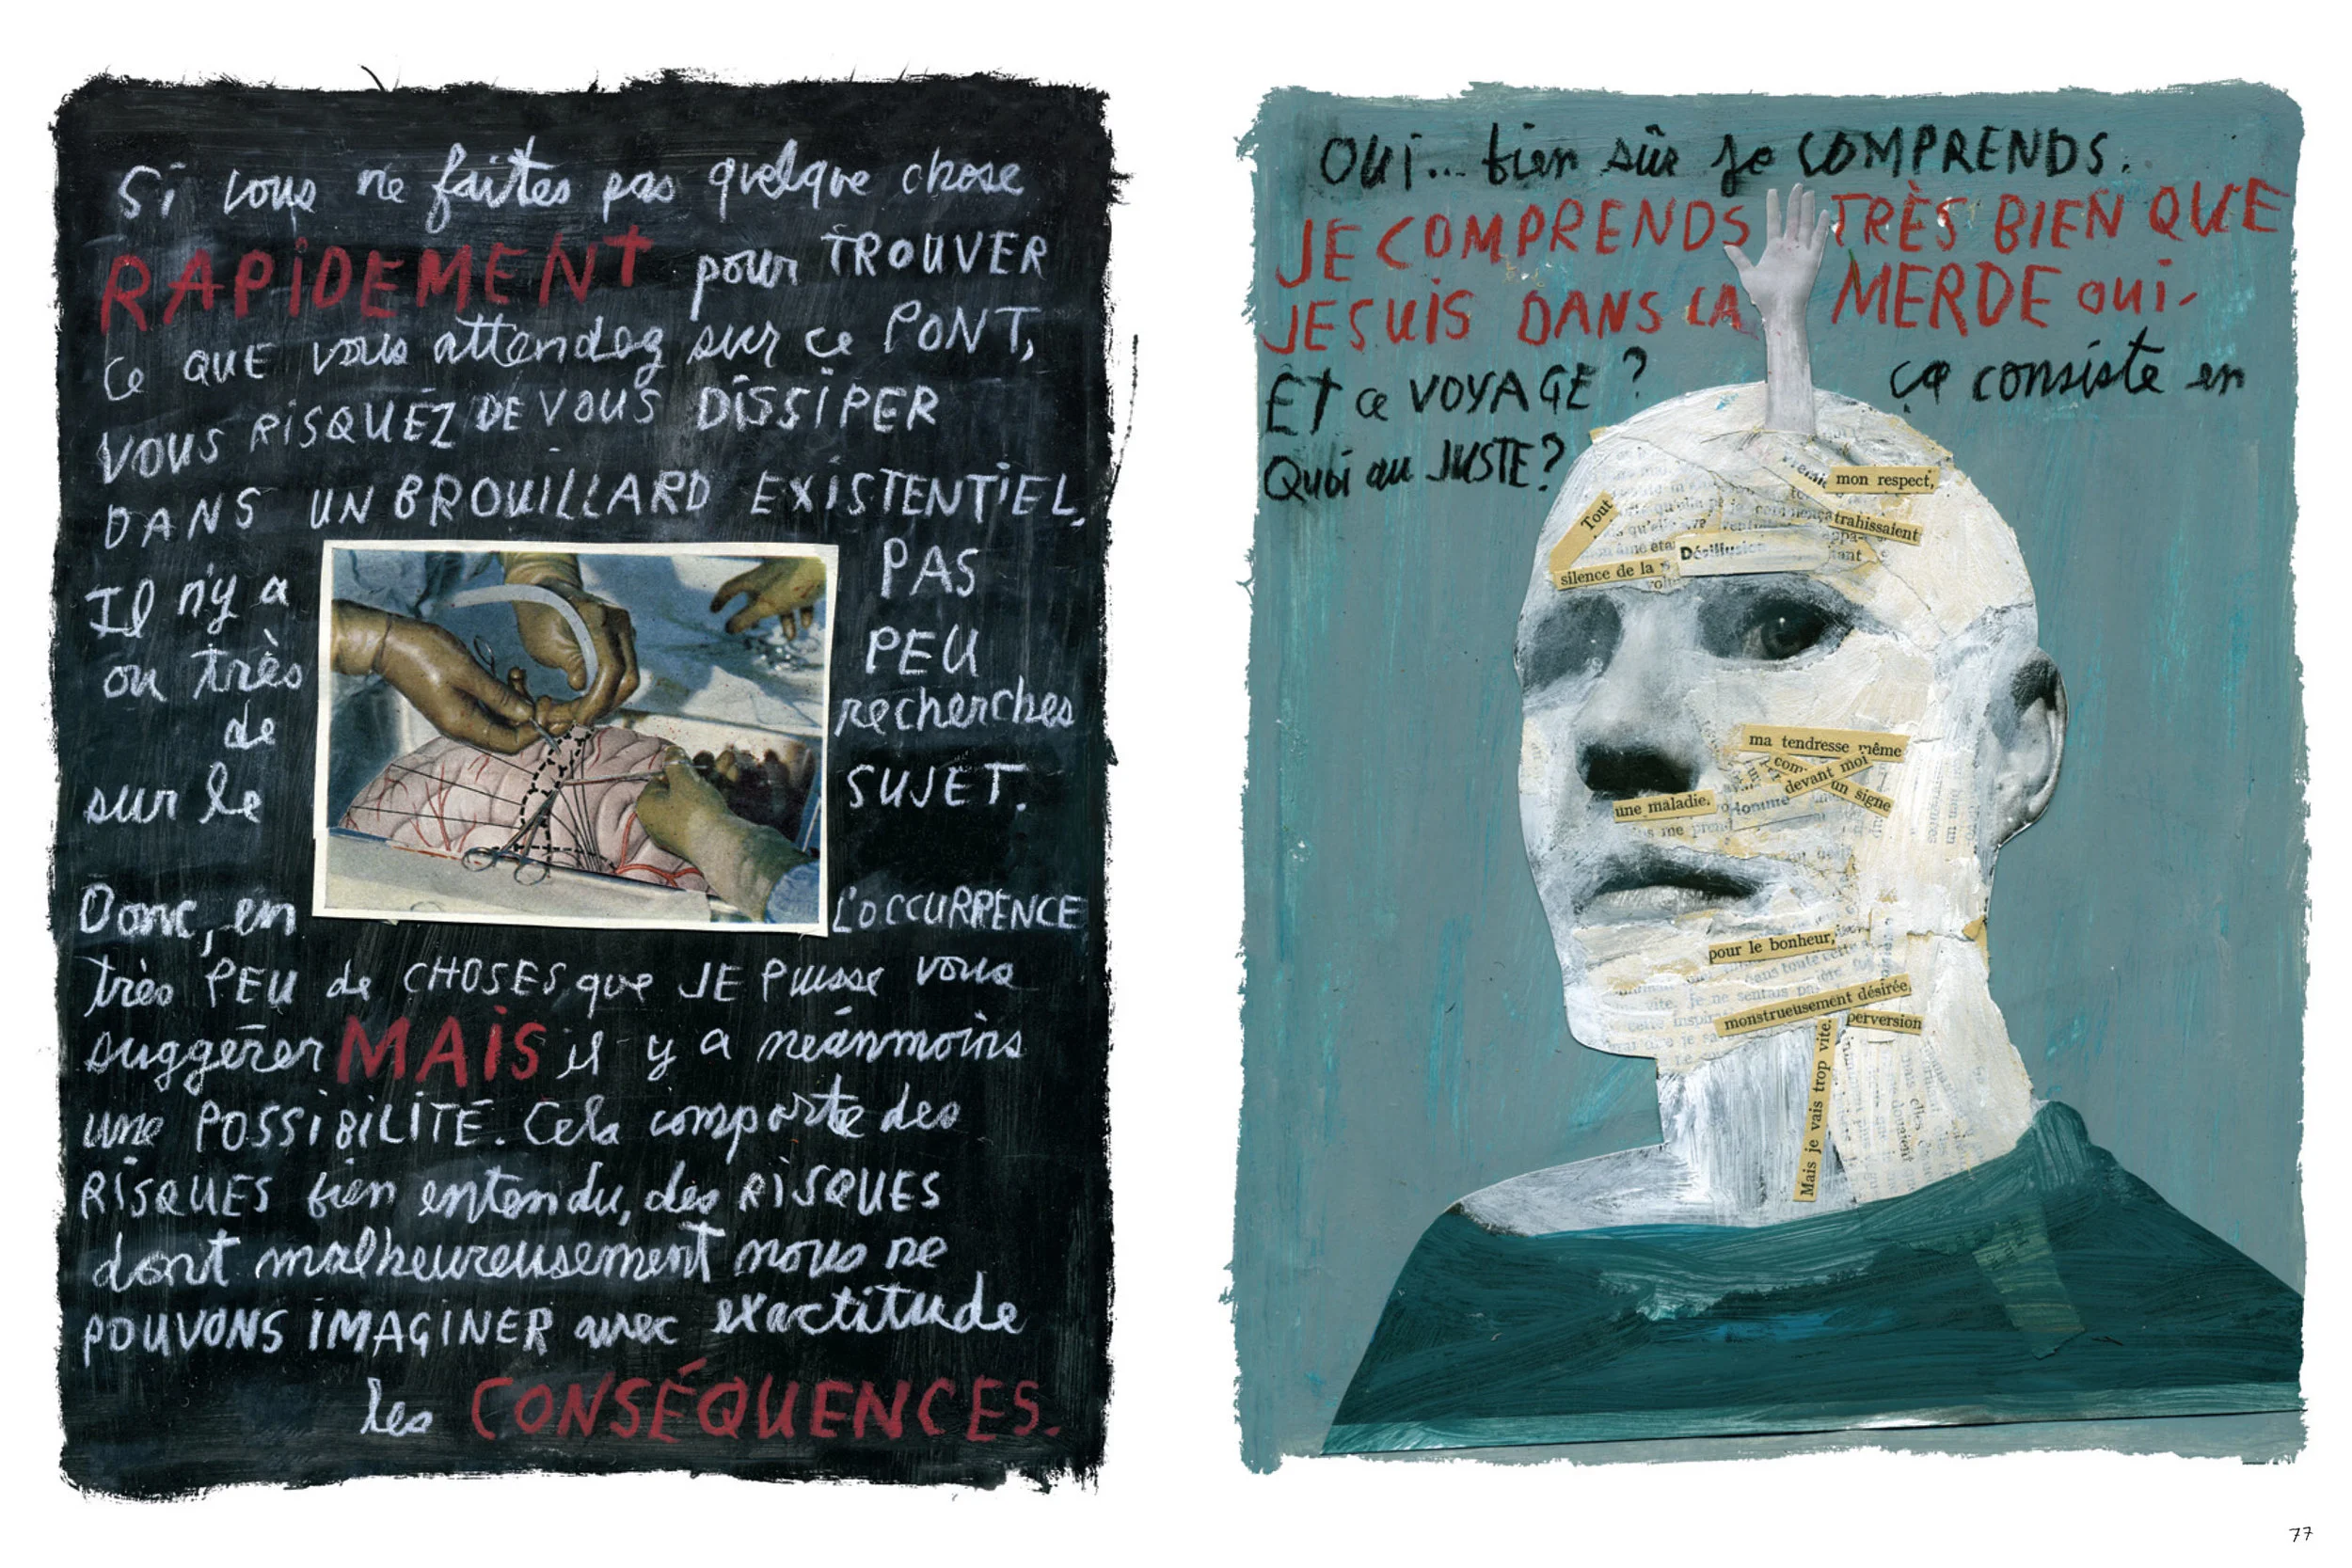 Si vous ne faites pas quelque chose
RAPIDEMENT pour TROUVER
ce QUE vous attendez sur ce PONT,
VOUS RISQUEZ DE VOUS DISSIPER
DANS UN BROUILLARD EXISTENTIEL.
Il n'y a PAS
ou très PEU
de recherches
sur le SUJET.
Donc, en L'OCCURRENCE
très PEU de CHOSES que JE PUISSE vous
suggérer MAIS il y a néanmoins
une POSSIBILITÉ. Cela comporte des
RISQUES bien entendu, des RISQUES
dont malheureusement nous ne
POUVONS IMAGINER avec exactitude
les CONSÉQUENCES.
OUI... bien sûr je COMPRENDS.
JE COMPRENDS TRÈS BIEN QUE
JE SUIS DANS LA MERDE oui-
ET ce VOYAGE ? ça consiste en
Quoi au JUSTE ?
mon respect,
Tout
trahissaient
Désillusion
silence de la
ma tendresse même
devant moi
un signe
une maladie.
pour le bonheur,
monstrueusement désirée,
perversion
Mais je vais trop vite.
77